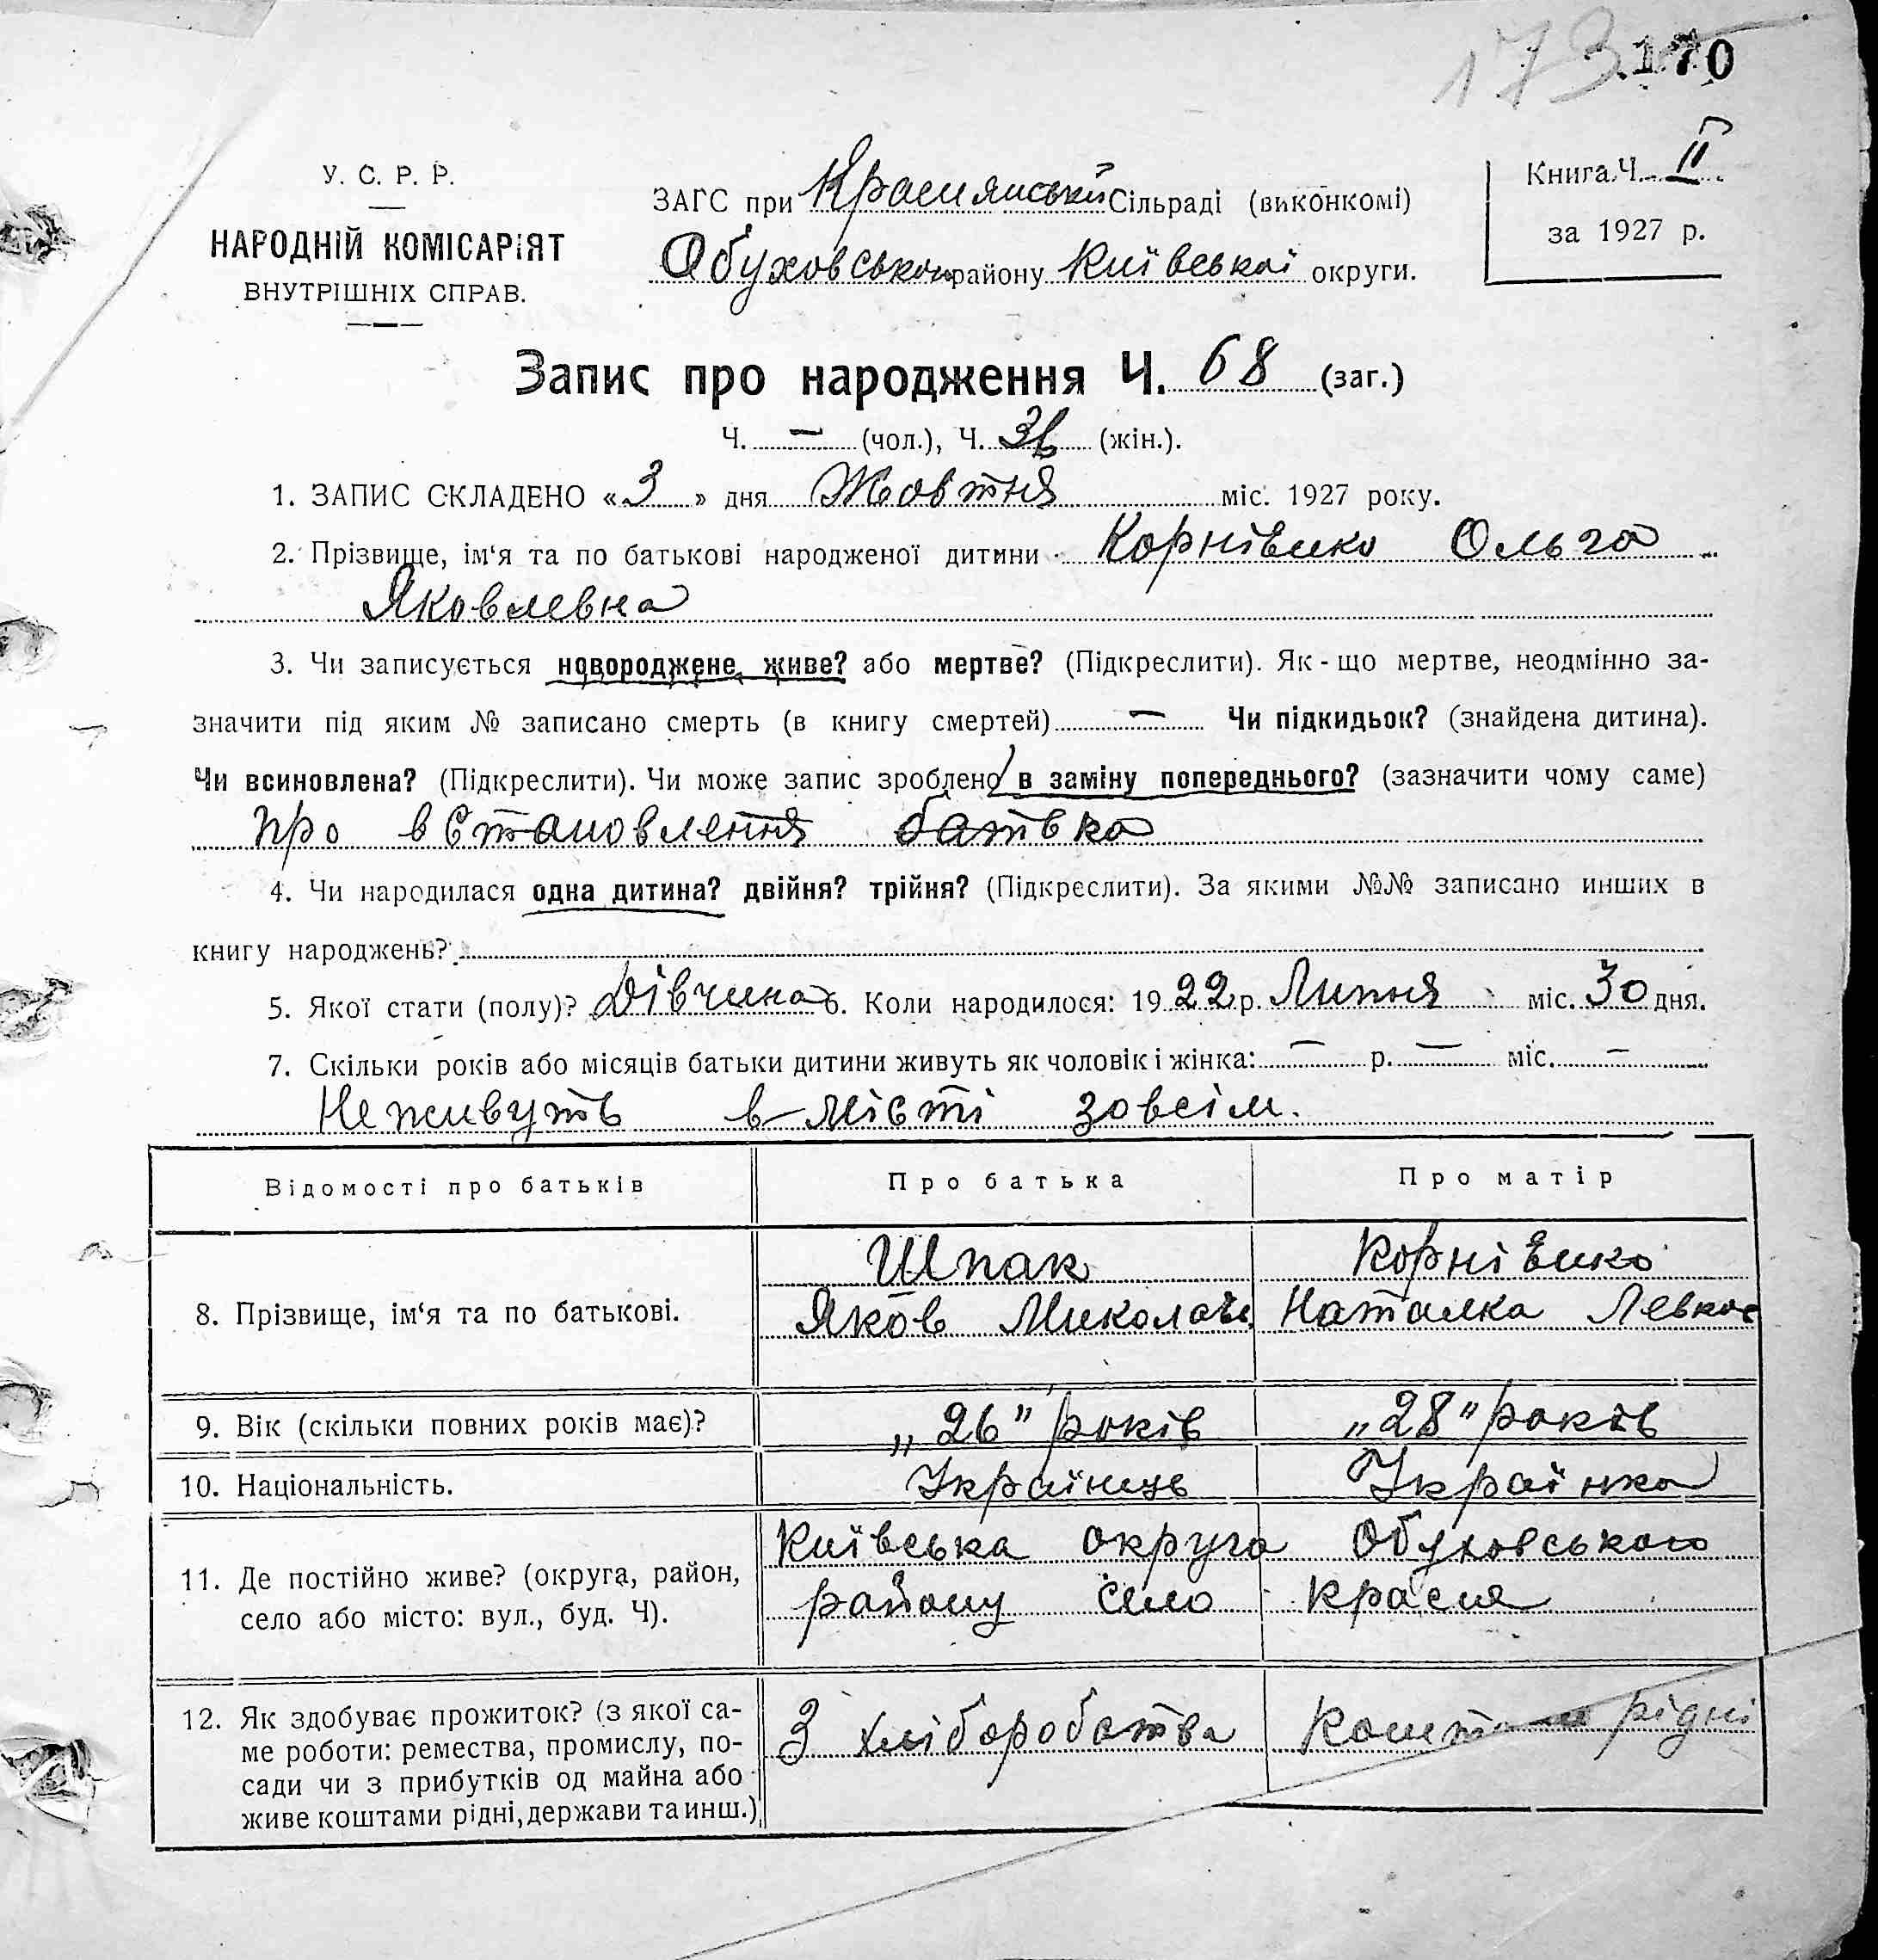 173
170
У. С. Р. Р.
НАРОДНІЙ КОМІСАРІЯТ
ВНУТРІШНІХ СПРАВ.
ЗАГС при Краснянській Сільраді (виконкомі)
Обуховського району Київської округи.
Книга Ч. II
за 1927 р.
Запис про народження Ч. 68 (заг.)
Ч. — (чол.), Ч. (жін.).
1. ЗАПИС СКЛАДЕНО «3» дня Жовтня міс. 1927 року.
2. Прізвище, ім‘я та по батькові народженої дитини Корнієнко Ольга
Яковлевна
3. Чи записується новороджене живе? або мертве? (Підкреслити). Як-що мертве, неодмінно за-
значити під яким № записано смерть (в книгу смертей) — Чи підкидьок? (знайдена дитина).
Чи всиновлена? (Підкреслити). Чи може запис зроблено в заміну попереднього? (зазначити чому саме)
про встановлення батька
4. Чи народилася одна дитина? двійня? трійня? (Підкреслити). За якими №№ записано инших в
книгу народжень?
5. Якої стати (полу)? Дівчина 6. Коли народилося: 1922 р. Липня міс. 30 дня.
7. Скільки років або місяців батьки дитини живуть як чоловік і жінка: — р. — міс. —
Не живуть в місті зовсім.
Відомості про батьків Про батька Про матір
Шпак Корнієнко
8. Прізвище, ім‘я та по батькові. Яков Миколаєв Наталка Левков
9. Вік (скільки повних років має)? „26” років „28” років
10. Національність. Українець Українка
Київська округа Обуховського
11. Де постійно живе? (округа, район, району село Красня
село або місто: вул., буд. Ч).
12. Як здобуває прожиток? (з якої са- З хліборобства Коштами рідні
ме роботи: ремества, промислу, по-
сади чи з прибутків од майна або
живе коштами рідні, держави та инш.)